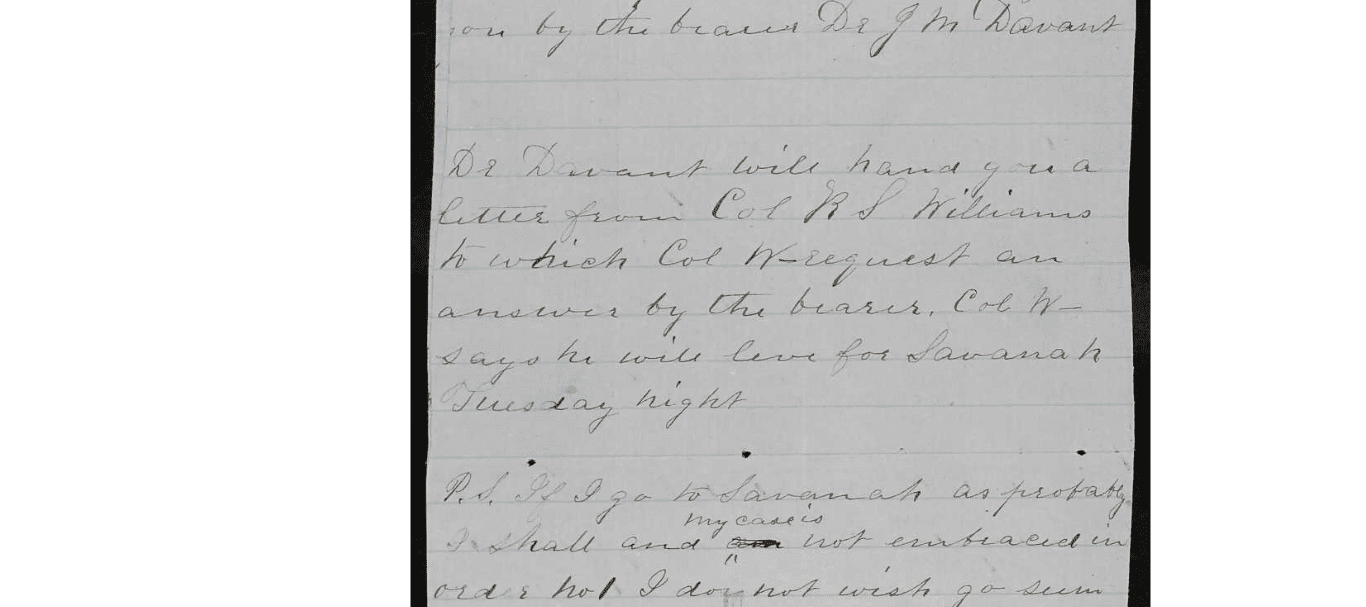 on by the bearer Dr J M Davant
Dr Davant will hand you a
letter from Col R S Williams
to which Col W-request an
answer by the bearer. Col W-
says he will leve for Savanah
Tuesday night
P.S. If I go to Savanah as probably
my case is
I shall and am not embraced in
order no 1 I do not wish go